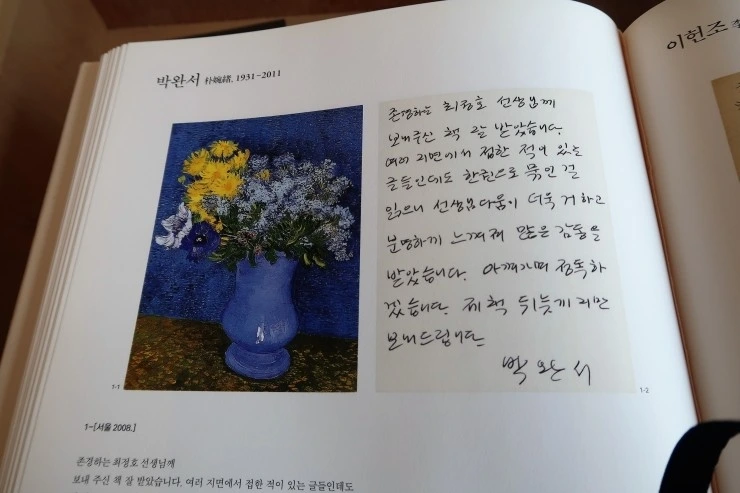 박완서 朴婉緖, 1931-2011
존경하는 최정호 선생님께
보내주신 책 잘 받았습니다.
여러 지면에서 접한 적이 있는
글들인데도 한권으로 묶인 걸
읽으니 선생님다움이 더욱 거하고
분명하게 느껴져 많은 감동을
받았습니다. 아껴가며 정독하
겠습니다. 제 책 뒤늦게 지만
보내드립니다.
박완서
1-1
1-2
1-[서울 2008.]
존경하는 최정호 선생님께
보내 주신 책 잘 받았습니다. 여러 지면에서 접한 적이 있는 글들인데도
이헌조